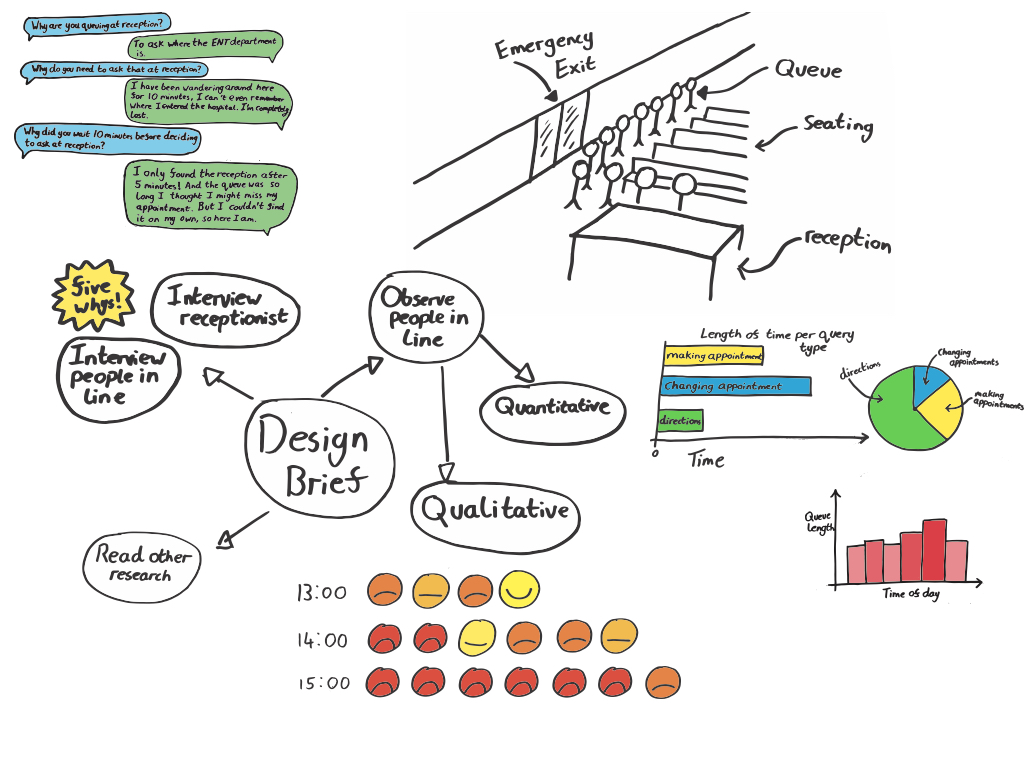 Why are you queuing at reception?
To ask where the ENT department
is.
Why do you need to ask that at reception?
I have been wandering around here
for 10 minutes, I can't even remember
where I entered the hospital. I'm completely
lost.
Why did you wait 10 minutes before deciding
to ask at reception?
I only found the reception after
5 minutes! And the queue was so
long I thought I might miss my
appointment. But I couldn't find
it on my own, so here I am.
Emergency
Exit
Queue
Seating
reception
five
whys!
Interview
receptionist
Interview
people in
line
Observe
people in
line
Quantitative
Design
Brief
Qualitative
Read other
research
Length of time per query
type
making appointment
Changing appointment
directions
0
Time
directions
Changing
appointments
making
appointments
Queue
length
Time of day
13:00
14:00
15:00